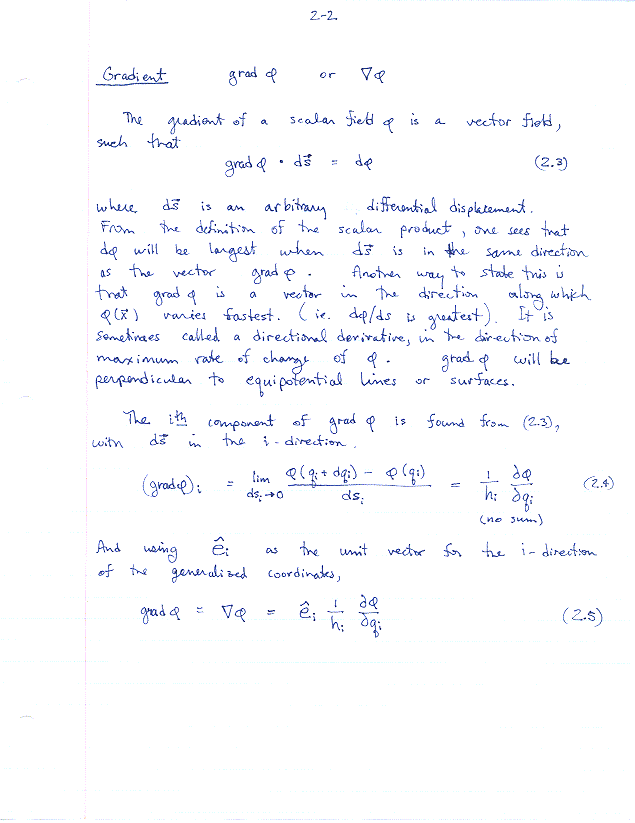 2-2
Gradient grad φ or ∇φ
The gradient of a scalar field φ is a vector field,
such that
grad φ · ds⃗ = dφ (2.3)
where ds⃗ is an arbitrary differential displacement.
From the definition of the scalar product, one sees that
dφ will be largest when ds⃗ is in the same direction
as the vector grad φ. Another way to state this is
that grad φ is a vector in the direction along which
φ(x⃗) varies fastest. (ie. dφ/ds is greatest). It is
sometimes called a directional derivative, in the direction of
maximum rate of change of φ. grad φ will be
perpendicular to equipotential lines or surfaces.
The ith component of grad φ is found from (2.3),
with ds⃗ in the i-direction.
(grad φ)ᵢ = lim dsᵢ→0 φ(qᵢ + dqᵢ) − φ(qᵢ) / dsᵢ = 1/hᵢ ∂φ/∂qᵢ (2.4)
(no sum)
And using êᵢ as the unit vector for the i-direction
of the generalized coordinates,
grad φ = ∇φ = êᵢ 1/hᵢ ∂φ/∂qᵢ (2.5)